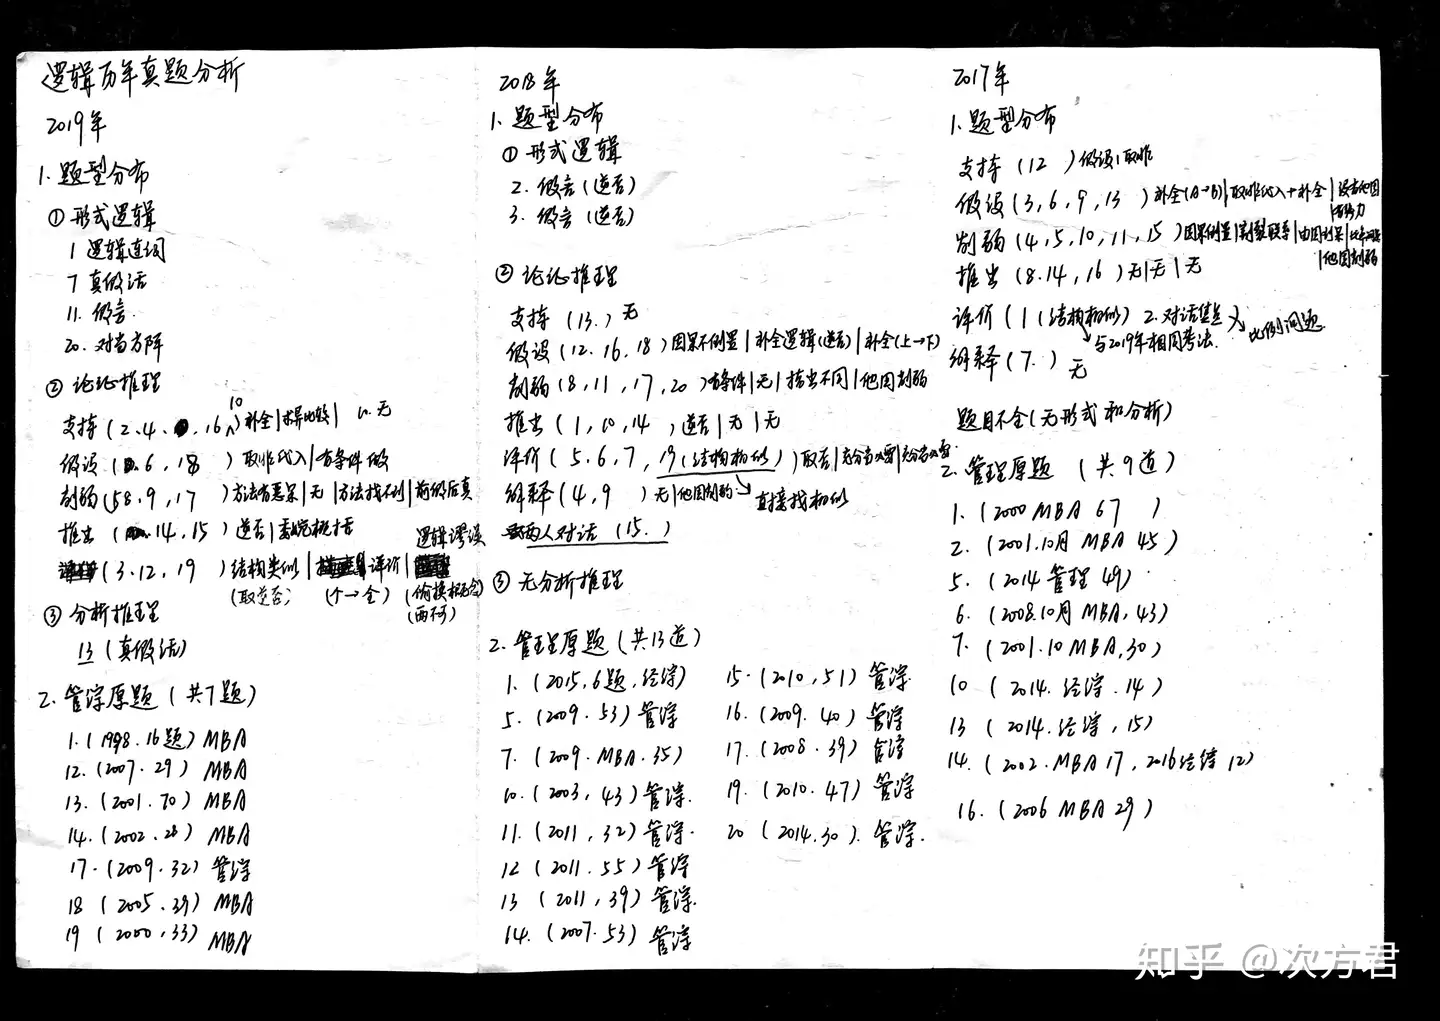 逻辑历年真题分析
2019年
1. 题型分布
① 形式逻辑
1 逻辑连词
7 真假话
11. 假言.
20. 对当方阵
② 论证推理
10
支持 (2.4. .16 ) 补全|求异比较| 10.无
假设 ( 6,18 ) 取非代入|有条件做
削弱 (5 8.9,17 ) 方法有恶果|无|方法找不到|前假后真
推出 ( 14,15 ) 逆否| 概括
逻辑谬误
(3.12,19 ) 结构类似| 评价|
(取逆否) (个→全) (偷换概念)
(两不可)
③ 分析推理
13 (真假话)
2. 管综原题 (共7题)
1. (1998.16题) MBA
12. (2007.29) MBA
13. (2001.70) MBA
14. (2002.28) MBA
17. (2009.32) 管综
18 (2005.39) MBA
19 (2000,33) MBA
2018年
1. 题型分布
① 形式逻辑
2. 假言 (逆否)
3. 假言 (逆否)
② 论证推理
支持 (13.) 无
假设 (12.16,18) 因果不倒置|补全逻辑(逆否)|补全(上→下)
削弱 (8,11,17,20) 有条件|无|指出不同|他因削弱
推出 (1,10,14 ) 逆否|无|无
评价 (5.6,7,19(结构相似) ) 取否|充分当必要|充分当必要
解释 (4,9 ) 无|他因削弱 直接找相似
两人对话 (15.)
③ 无分析推理
2. 管理原题 (共13道)
1. (2015,6题,经综)
5. (2009.53) 管综
7. (2009.MBA.35)
10. (2003,43) 管综.
11. (2011,32) 管综.
12 (2011.55) 管综
13 (2011,39) 管综.
14. (2007.53) 管综
15. (2010,51) 管综.
16. (2009.40) 管综
17. (2008.39) 管综
19. (2010.47) 管综
20 (2014.30). 管综.
2017年
1. 题型分布
支持 (12 ) 假设|取非
假设 (3,6,9,13 ) 补全(A→B)|取非代入+补全|没有他因
|有能力
削弱 (4,5,10,11,15) 因果倒置|割裂联系|由因到果|
|他因削弱
推出 (8.14,16 ) 无|无|无
评价 (1 (结构相似) 2.对话焦点 比例问题
与2019年相同考法.
解释 (7. ) 无
题目不全(无形式和分析)
2. 管理原题 (共9道)
1. (2000 MBA 67 )
2. (2001.10月 MBA 45)
5. (2014 管理 49)
6. (2008.10月 MBA, 43)
7. (2001.10 MBA,30)
10 (2014. 经综. 14)
13 (2014.经综,15)
14. (2002.MBA 17, 2016经综 12)
16. (2006 MBA 29)
知乎 @次方君